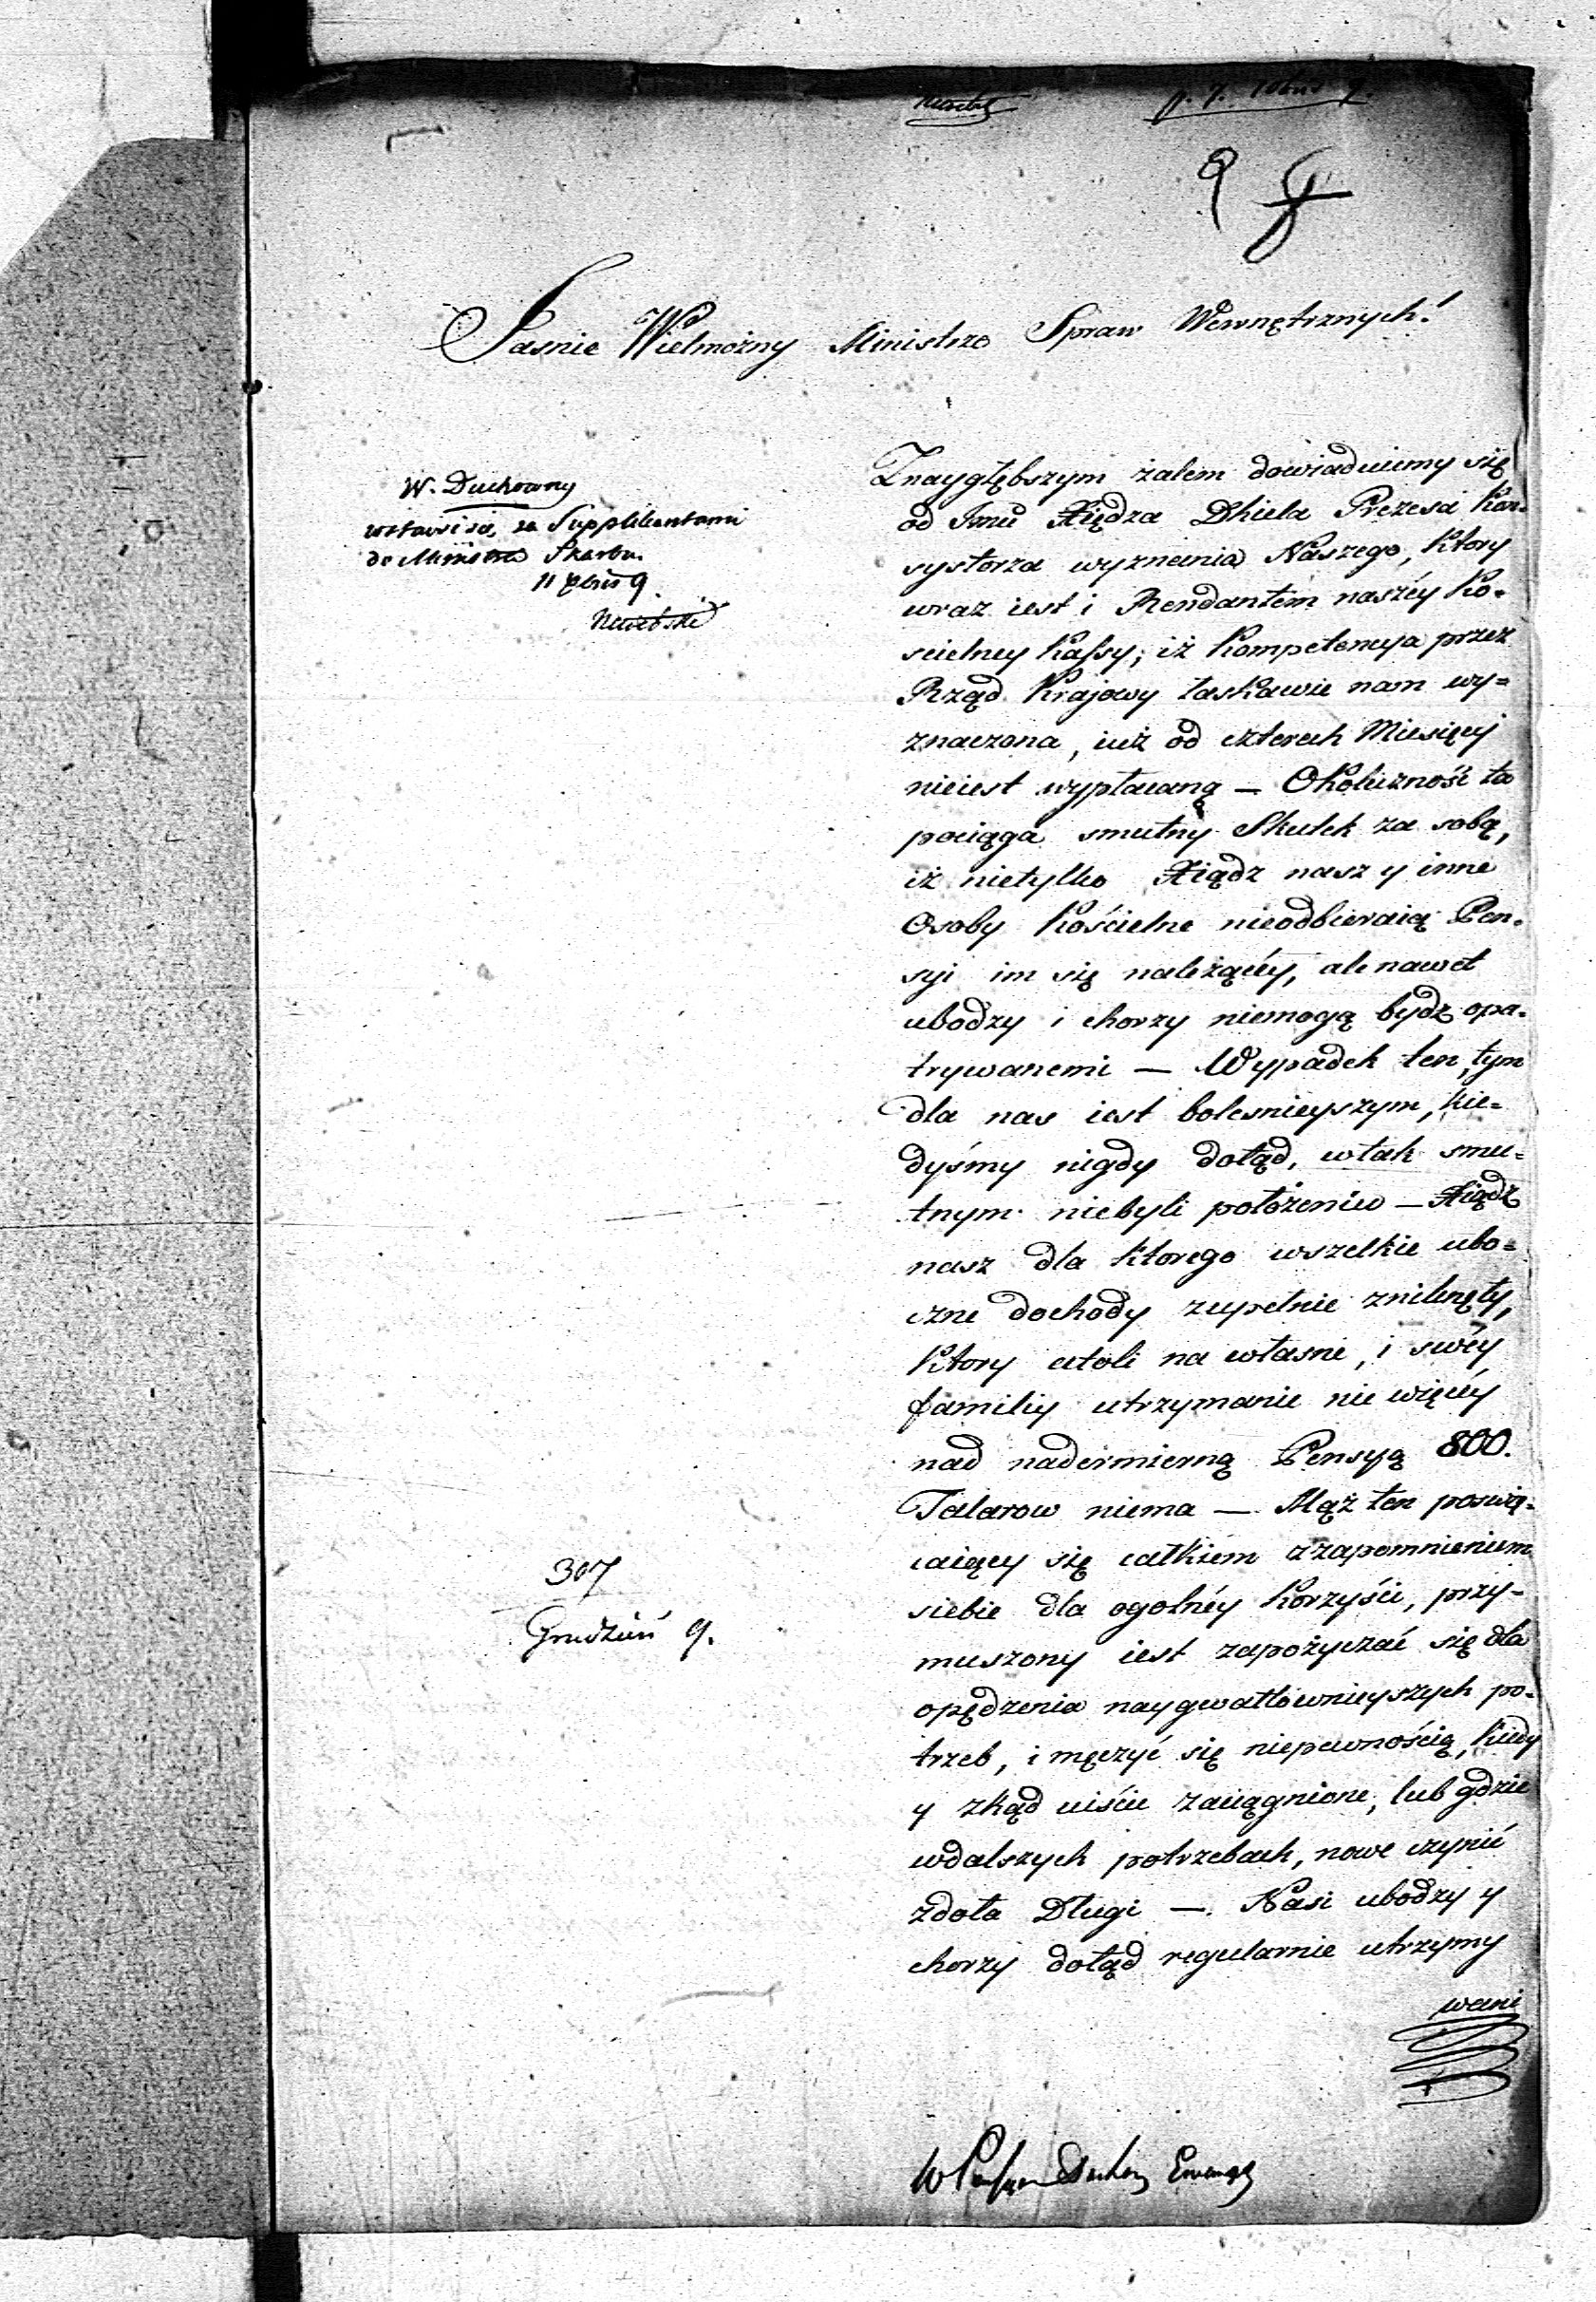 Jasnie Wielmożny Ministrze Spraw Wewnętrznych!
W. Duchowny
wstawi się, za Supplikantami
do Ministra Skarbu.
11 Xbris 9.
Znaygłębszym żalem dowiaduiemy się
od Imci Xiędza Dhiela Prezesa Kon-
systorza wyznania Naszego, Ktory
wraz iest i Rendantem naszéy Ko-
scielney Kassy, iż Kompetencya przez
Rząd Krajowy łaskawie nam wy=
znaczona, iuż od czterech Miesięcy
nieiest wypłacaną — Okoliczność ta
pociąga smutny Skutek za sobą,
iż nietylko Xiądz nasz y inne
Osoby Kościelne nieodbieraią Pen-
syi im się należącéy, ale nawet
ubodzy i chorzy niemogą bydz opa-
trywanemi — Wypadek ten, tym
dla nas iest bolesnieyszym, kie-
dyśmy nigdy dotąd, wtak smu-
tnym niebyli położeniu — Xiądz
nasz dla ktorego wszelkie ubo=
czne dochody zupełnie zniknęły,
Ktory atoli na własne, i swéy
familiy utrzymanie nie więcéy
nad nadermierną Pensyą 800.
Talarow niema — Mąż ten poswię-
caiący się całkiem z zapomnieniem
siebie dla ogolnéy Korzyści, przy-
muszony iest zapożyczać się dla
opędzenia naygwałtownieyszych po-
trzeb, i męczyć się niepewnością, kiedy
y zkąd uiście zaciągnione, lub gdzie
wdalszych potrzebach, nowe czynić
zdoła Długi —. Nasi ubodzy y
chorzy dotąd regularnie utrzymy
wani
307
Grudzień 9.